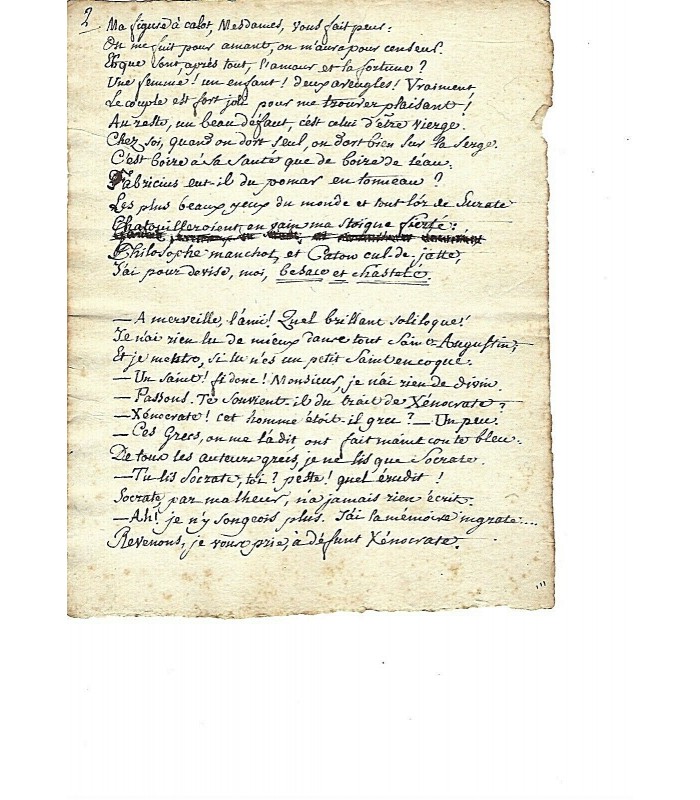 2
Ma figure à calot, Mesdames, vous fait peur:
On me fuit pour amant, on m'aura pour censeur.
Et que sont, après tout, l'amour et la fortune?
Une femme! un enfant! deux aveugles! Vraiment,
Le couple est fort joli pour me trouver plaisant!
Au reste, un beau défaut, c'est celui d'être vierge.
Chez soi, quand on dort seul, on dort bien sur la serge.
C'est boire à sa santé que de boire de l'eau:
Fabricius eut-il du pomar en tonneau?
Les plus beaux yeux du monde et tout l'or de Surate
Chatouilleroient en vain ma stoïque fierté:
Philosophe manchot, et Caton cul-de-jatte,
J'ai pour devise, moi, besace et chasteté.
— A merveille, l'ami! Quel brillant soliloque!
Je n'ai rien lu de mieux dans tout Saint Augustin;
Et je meure, si tu n'es un petit Saint en coque.
— Un Saint! fi donc! Monsieur, je n'ai rien de divin.
— Passons. Te souvient-il du trait de Xénocrate?
— Xénocrate! cet homme étoit-il grec? — Un peu.
— Ces Grecs, on me l'a dit ont fait maint conte bleu.
De tous les auteurs grecs, je ne lis que Socrate.
— Tu lis Socrate, toi? peste! quel érudit!
Socrate par malheur, n'a jamais rien écrit.
— Ah! je n'y songeois plus. J'ai la mémoire ingrate....
Revenons, je vous prie, à défunt Xénocrate.